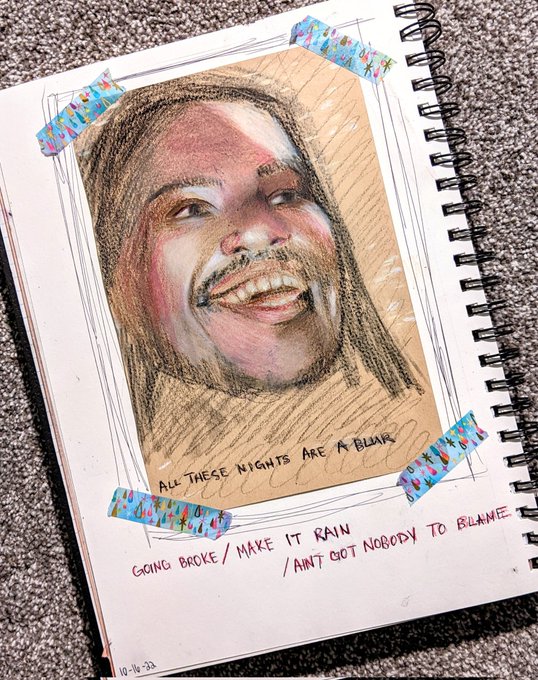 ALL THESE NIGHTS ARE A BLUR
GOING BROKE / MAKE IT RAIN
/AINT GOT NOBODY TO BLAME
10-16-22